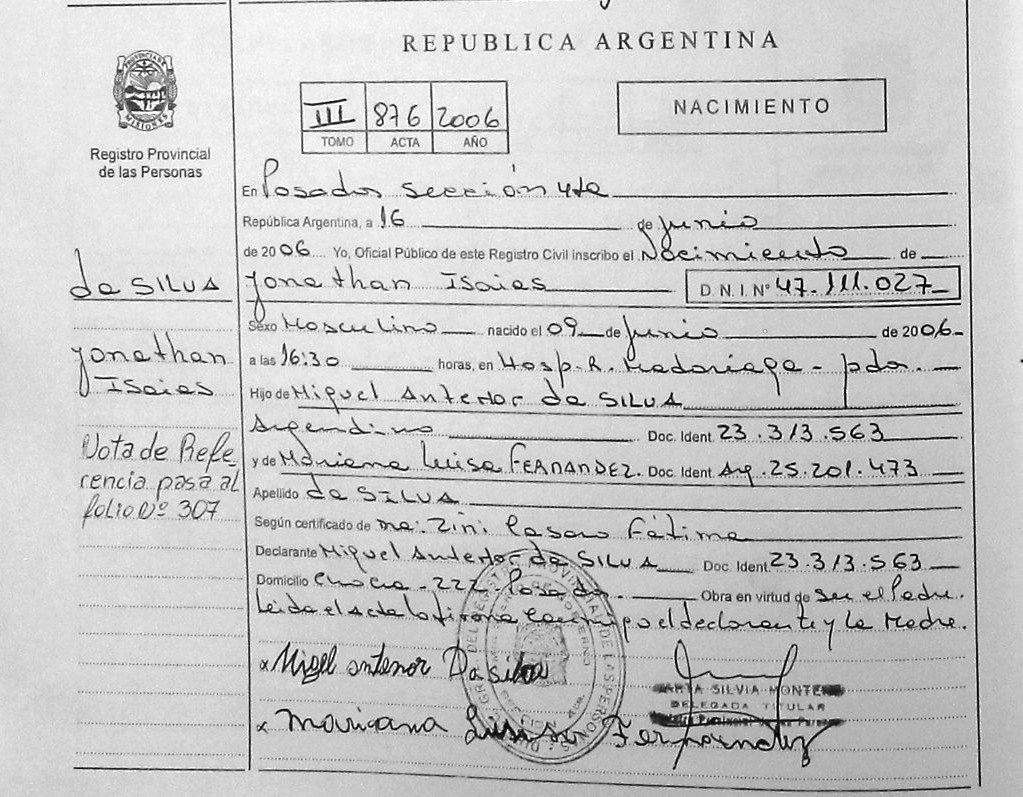 REPUBLICA ARGENTINA
PROVINCIA DE
MISIONES
Registro Provincial
de las Personas
III 876 2006
TOMO ACTA AÑO
NACIMIENTO
En Posadas Sección 4ta
República Argentina, a 16 de Junio
de 2006 Yo, Oficial Público de este Registro Civil inscribo el Nacimiento de
Jonathan Isaias D.N.I. Nº 47.111.027
Sexo Masculino nacido el 09 de Junio de 2006
a las 16:30 horas, en Hosp. R. Madariaga - pdas.
Hijo de Miguel Antenor da SILVA
Argentino Doc. Ident 23.313.563
y de Mariana Luisa FERNANDEZ. Doc. Ident Arg. 25.201.473
Apellido da SILVA
Según certificado de Fátima
Declarante Miguel Antenor da SILVA Doc. Ident. 23.313.563
Domicilio 222 Posadas Obra en virtud de Ser el Padre.
Leida el Acta la firma conmigo el declarante y la Madre.
x Migel antenor Dasilva
x Maricana Luisa Fernandez
SILVIA MONTE
DELEGADA TITULAR
da SILVA
Jonathan
Isaias
Nota de Refe-
rencia pasa al
folio Nº 307